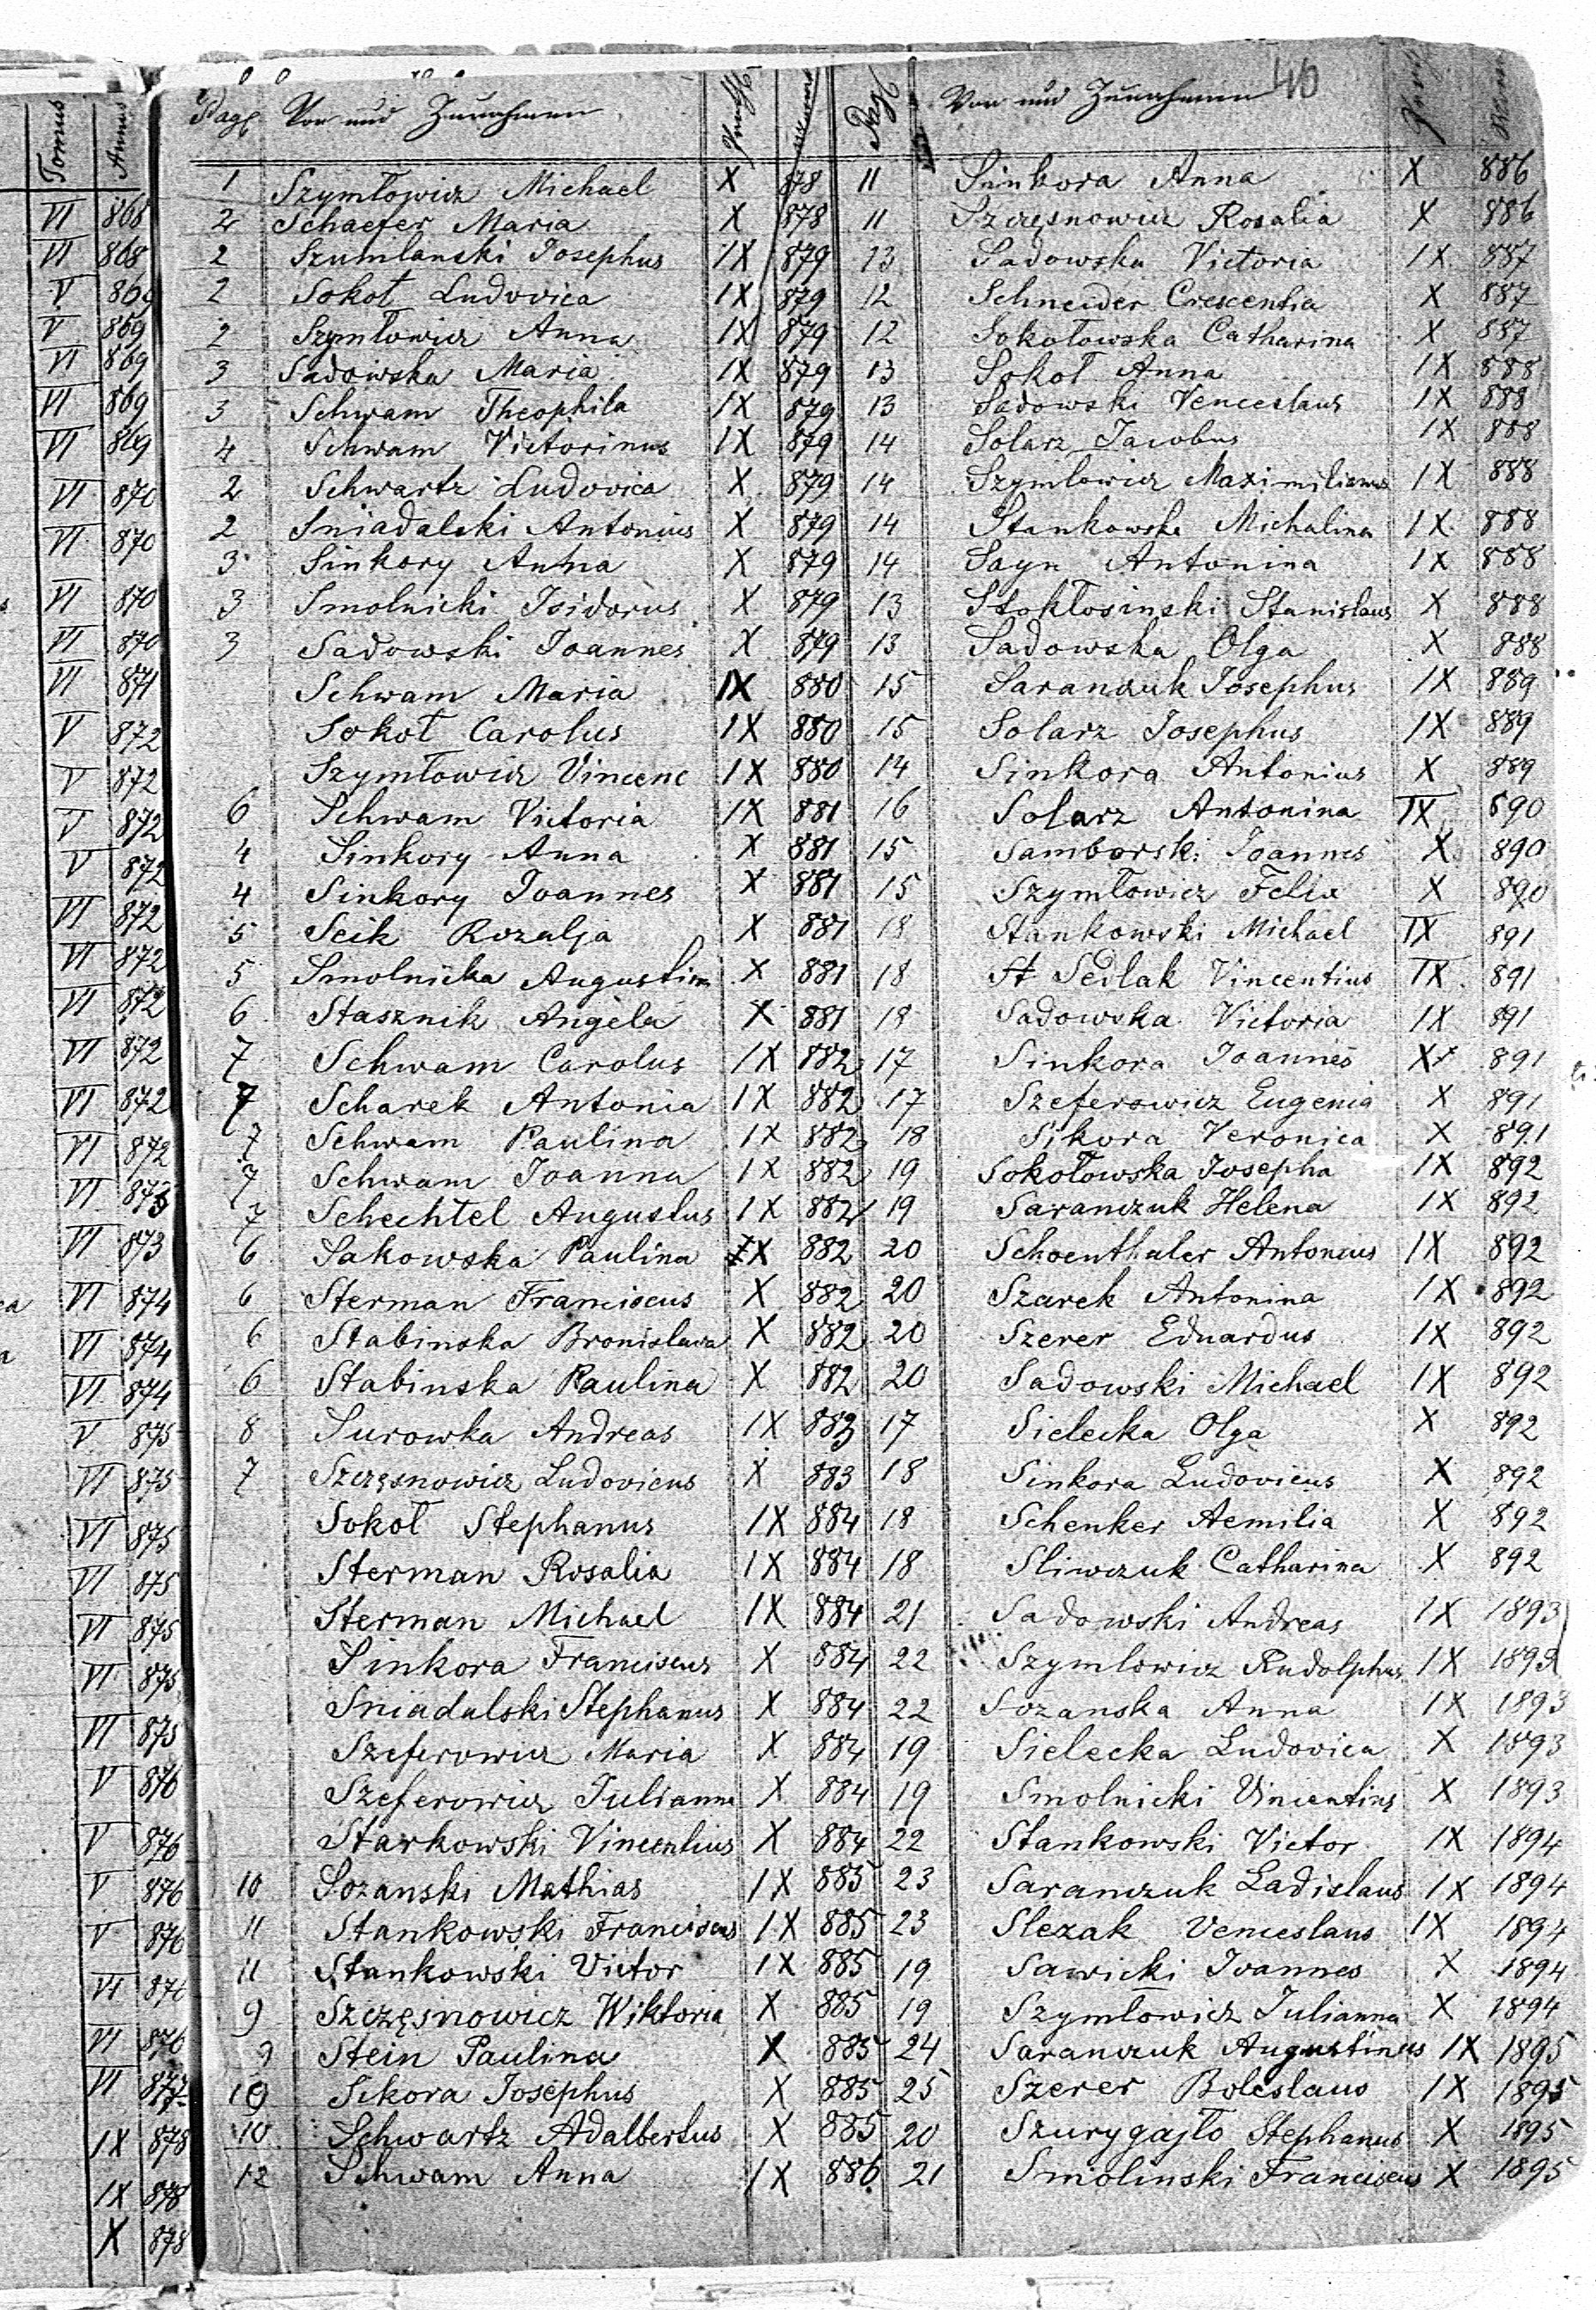 40
Pag. Vor- und Zunahmen
Pag. Vor und Zunahmen
Tomus Annus
VI 868
VI 868
V 869
V 869
VI 869
VI 869
VI 869
VI 870
VI 870
VI 870
VI 870
VI 871
V 872
V 872
V 872
V 872
VI 872
VI 872
VI 872
VI 872
VI 872
VI 872
VI 873
VI 873
VI 874
VI 874
VI 874
V 875
VI 875
VI 875
VI 875
VI 875
VI 875
VI 875
V 876
V 876
V 876
V 876
VI 876
VI 876
VI 877
IX 878
IX 878
X 878
1 Szymłowicz Michael X 878
2 Schaefer Maria X 878
2 Szumlanski Josephus IX 879
2 Sokoł Ludovica IX 879
2 Szymłowicz Anna IX 879
3 Sadowska Maria IX 879
3 Schwam Theophila IX 879
4 Schwam Victorinus IX 879
2 Schwartz Ludovica X 879
2 Sniadalski Antonius X 879
3 Sinkory Anna X 879
3 Smolnicki Isidorus X 879
3 Sadowski Joannes X 879
Schwam Maria IX 880
Sokoł Carolus IX 880
Szymłowicz Vincenc IX 880
6 Schwam Victoria IX 881
4 Sinkory Anna X 881
4 Sinkory Joannes X 881
5 Scik Rozalja X 881
5 Smolnicka Augustina X 881
6 Stasznik Angela X 881
7 Schwam Carolus IX 882
7 Scharek Antonia IX 882
7 Schwam Paulina IX 882
7 Schwam Joanna IX 882
7 Schechtel Augustus IX 882
6 Sakowska Paulina IX 882
6 Sterman Franciscus X 882
6 Stabinska Bronislawa X 882
6 Stabinska Paulina X 882
8 Surowka Andreas IX 883
7 Szczęsnowicz Ludovicus X 883
Sokoł Stephanus IX 884
Sterman Rosalia IX 884
Sterman Michael IX 884
Sinkora Franciscus X 884
Sniadalski Stephanus X 884
Szeferowicz Maria X 884
Szeferowicz Julianna X 884
Starkowski Vincentius X 884
10 Sozanski Mathias IX 885
11 Stankowski Franciscus IX 885
11 Stankowski Victor IX 885
9 Szczęsnowicz Wiktoria X 885
9 Stein Paulina X 885
10 Sikora Josephus X 885
10 Schwartz Adalbertus X 885
12 Schwam Anna IX 886
11 Sinkora Anna X 886
11 Szczęsnowicz Rosalia X 886
13 Sadowska Victoria IX 887
12 Schneider Crescentia X 887
12 Sokołowska Catharina X 887
13 Sokoł Anna IX 888
13 Sadowski Venceslaus IX 888
14 Solarz Jacobus IX 888
14 Szymlowicz Maximilianus IX 888
14 Stankowska Michalina IX 888
14 Sayn Antonina IX 888
13 Stokłosinski Stanislaus X 888
13 Sadowska Olga X 888
15 Saranczuk Josephus IX 889
15 Solarz Josephus IX 889
14 Sinkora Antonius X 889
16 Solarz Antonina IX 890
15 Samborski Joannes X 890
15 Szymłowicz Felix X 890
18 Stankowski Michael IX 891
18 St Sedlak Vincentius IX 891
18 Sadowska Victoria IX 891
17 Sinkora Joannes X 891
17 Szeferowicz Eugenia X 891
18 Sikora Veronica X 891
19 Sokołowska Josepha IX 892
19 Saranczuk Helena IX 892
20 Schoenthaler Antonius IX 892
20 Szarek Antonina IX 892
20 Szerer Eduardus IX 892
20 Sadowski Michael IX 892
17 Sielecka Olga X 892
18 Sinkora Ludovicus X 892
18 Schenker Aemilia X 892
18 Sliwczuk Catharina X 892
21 Sadowski Andreas IX 1893
22 Szymlowicz Rudolphus IX 1893
22 Sozanska Anna IX 1893
19 Sielecka Ludovica X 1893
19 Smolnicki Vincentius X 1893
22 Stankowski Victor IX 1894
23 Saranczuk Ladislaus IX 1894
23 Slezak Venceslaus IX 1894
19 Sawicki Joannes X 1894
19 Szymłowicz Julianna X 1894
24 Saranczuk Augustinus IX 1895
25 Szerer Boleslaus IX 1895
20 Szurygajło Stephanus X 1895
21 Smolinski Franciscus X 1895